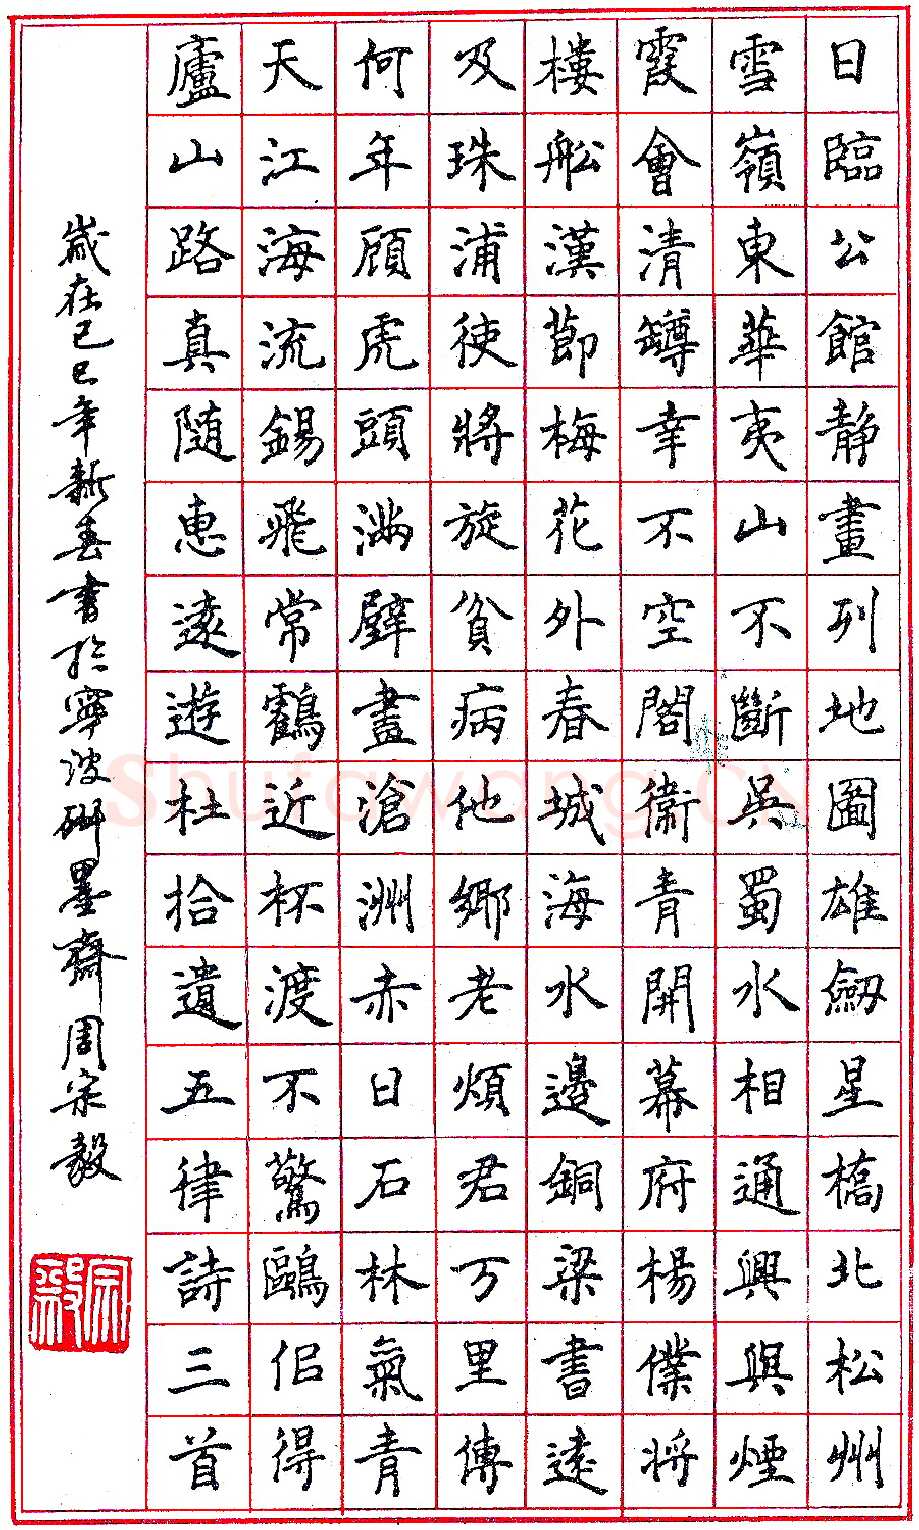 日臨公館静畫列地圖雄劒星橋北松州
雪嶺東華夷山不斷吳蜀水相通興與煙
霞會清罇幸不空閣衛青開幕府楊僕将
樓舩漢莭梅花外春城海水邊銅梁書遠
及珠浦使將旋貧病他鄉老煩君万里傳
何年頋虎頭滿壁畫滄洲赤日石林氣青
天江海流錫飛常近鶴杯渡不驚鷗佀得
廬山路真随惠遠遊杜拾遺五律詩三首
歲在己巳年新春書於寧波研墨齋周宗毅
宗毅
Shufawang.CN